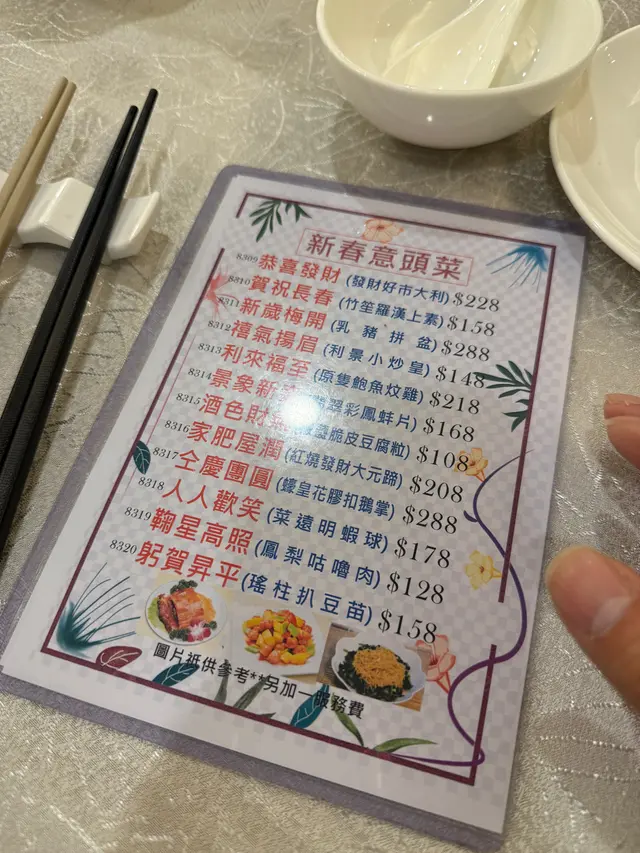 新春意頭菜
8309 恭喜發財 (發財好市大利) $228
8310 賀祝長春 (竹笙羅漢上素) $158
8311 新歲梅開 (乳豬拼盆) $288
8312 禧氣揚眉 (利景小炒皇) $148
8313 利來福至 (原隻鮑魚炆雞) $218
8314 景象新 彩鳳蚌片) $168
8315 酒色財 脆皮豆腐粒) $108
8316 家肥屋潤 (紅燒發財大元蹄) $208
8317 仝慶團圓 (蠔皇花膠扣鵝掌) $288
8318 人人歡笑 (菜遠明蝦球) $178
8319 鞠星高照 (鳳梨咕嚕肉) $128
8320 躬賀昇平 (瑤柱扒豆苗) $158
圖片祗供參考**另加一服務費